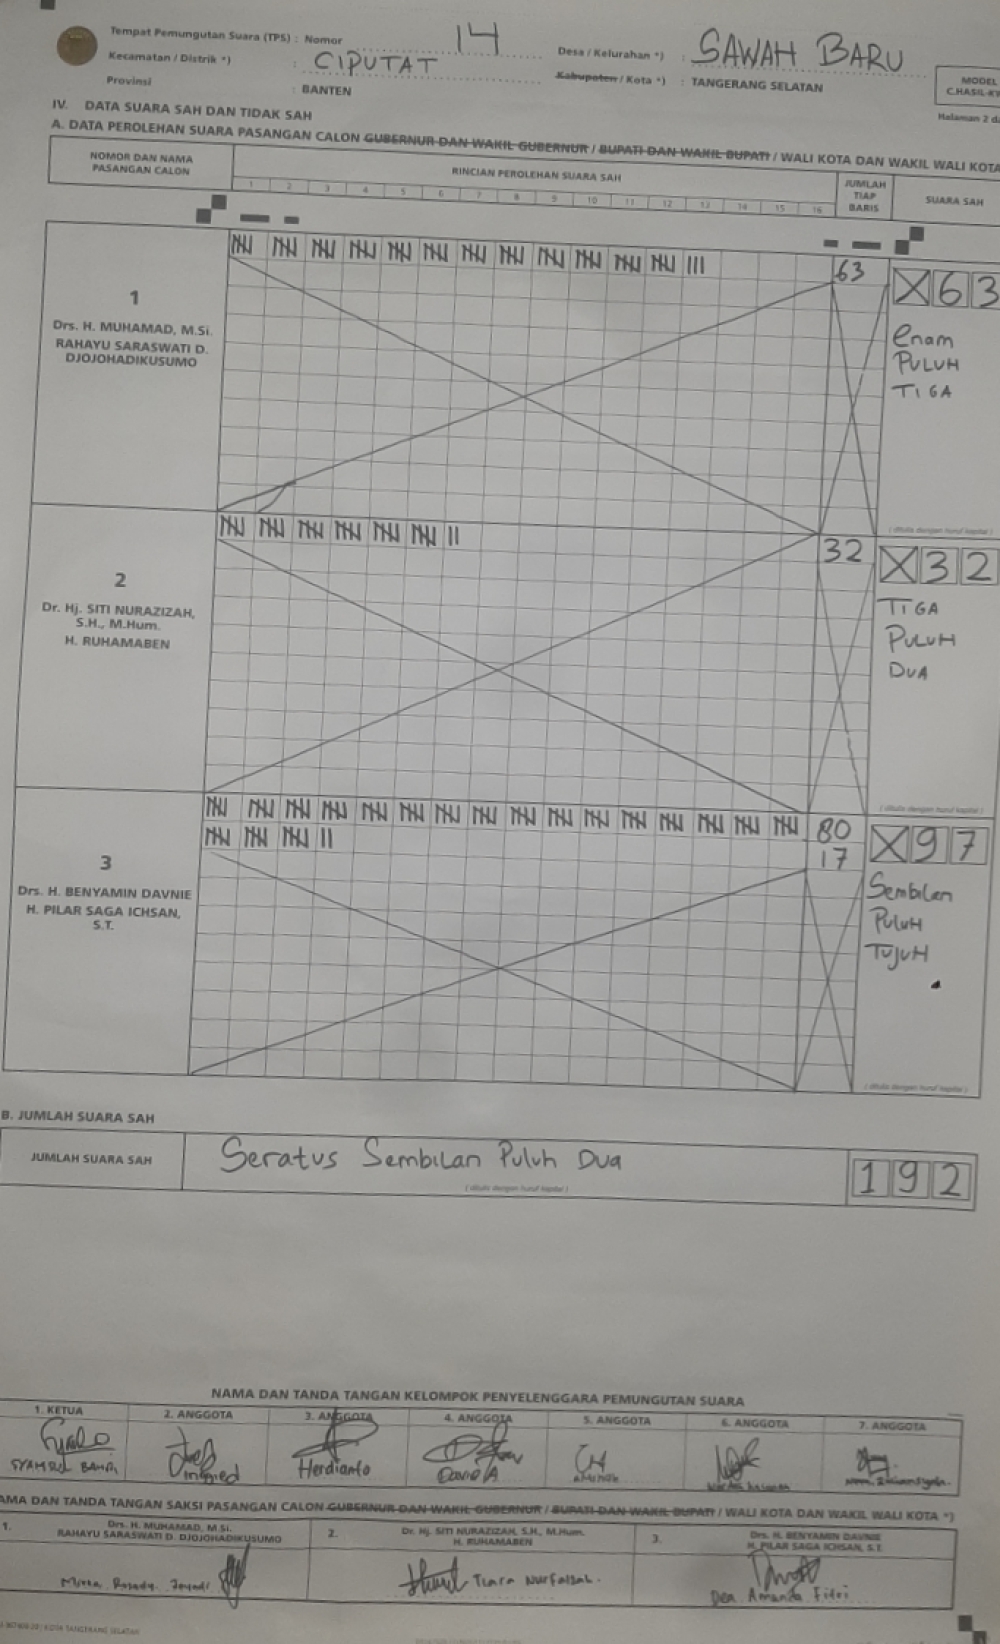 Tempat Pemungutan Suara (TPS) : Nomor 14 Desa / Kelurahan *) : SAWAH BARU
Kecamatan / Distrik *) : CIPUTAT Kabupaten / Kota *) : TANGERANG SELATAN
Provinsi : BANTEN
MODEL
C.HASIL-KW
Halaman 2 d
IV. DATA SUARA SAH DAN TIDAK SAH
A. DATA PEROLEHAN SUARA PASANGAN CALON GUBERNUR DAN WAKIL GUBERNUR / BUPATI DAN WAKIL BUPATI / WALI KOTA DAN WAKIL WALI KOTA
NOMOR DAN NAMA
PASANGAN CALON
RINCIAN PEROLEHAN SUARA SAH
1 2 3 4 5 6 7 8 9 10 11 12 13 14 15 16
JUMLAH
TIAP
BARIS
SUARA SAH
1
Drs. H. MUHAMAD, M.Si.
RAHAYU SARASWATI D.
DJOJOHADIKUSUMO
63
X 6 3
Enam
PULUH
TIGA
( ditulis dengan huruf kapital )
2
Dr. Hj. SITI NURAZIZAH,
S.H., M.Hum.
H. RUHAMABEN
32
X 3 2
TIGA
PULUH
DUA
( ditulis dengan huruf kapital )
3
Drs. H. BENYAMIN DAVNIE
H. PILAR SAGA ICHSAN,
S.T.
80
17
X 9 7
Sembilan
PULUH
TUJUH
( ditulis dengan huruf kapital )
B. JUMLAH SUARA SAH
JUMLAH SUARA SAH Seratus Sembilan Puluh Dua 1 9 2
( ditulis dengan huruf kapital )
NAMA DAN TANDA TANGAN KELOMPOK PENYELENGGARA PEMUNGUTAN SUARA
1. KETUA 2. ANGGOTA 3. ANGGOTA 4. ANGGOTA 5. ANGGOTA 6. ANGGOTA 7. ANGGOTA
Herdianto
AMA DAN TANDA TANGAN SAKSI PASANGAN CALON GUBERNUR DAN WAKIL GUBERNUR / BUPATI DAN WAKIL BUPATI / WALI KOTA DAN WAKIL WALI KOTA *)
1. Drs. H. MUHAMAD, M.Si.
RAHAYU SARASWATI D. DJOJOHADIKUSUMO
2. Dr. Hj. SITI NURAZIZAH, S.H., M.Hum.
H. RUHAMABEN
3. Drs. H. BENYAMIN DAVNIE
H. PILAR SAGA ICHSAN, S.T.
Tiara Nurfaizah.
Dea Amanda Fitri